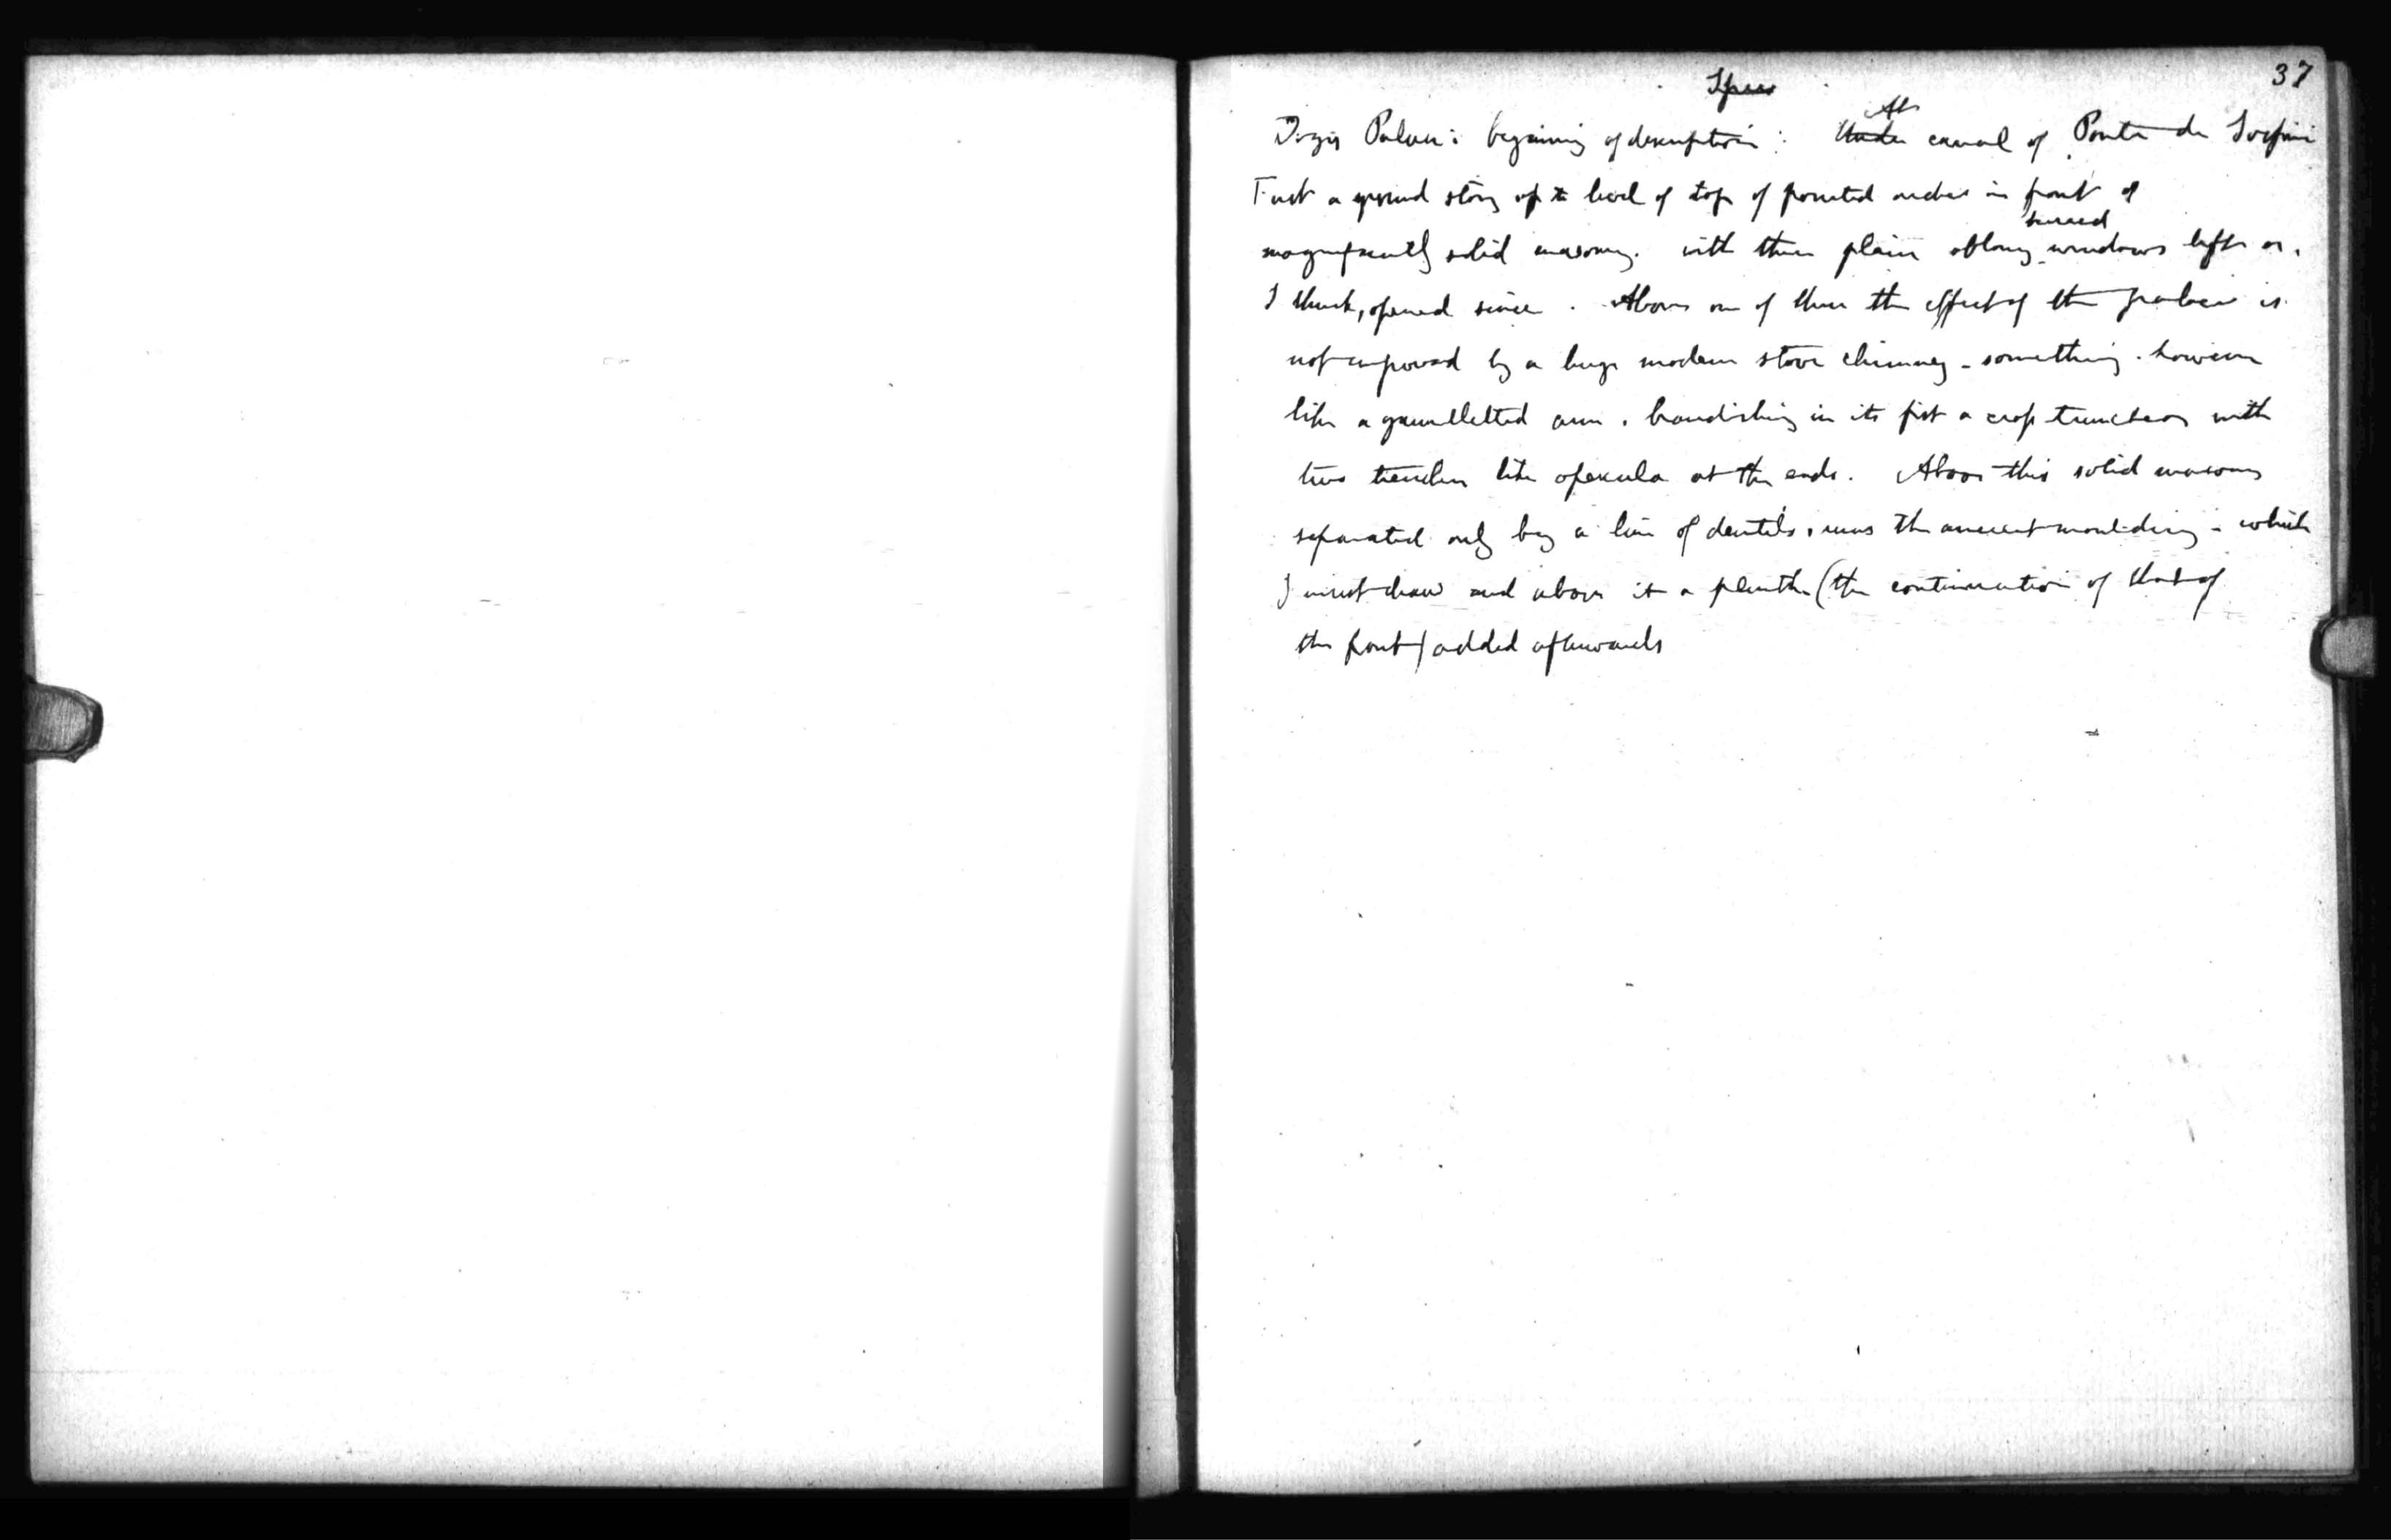 37
Doges Palace: beginning of description: At canal of Ponte de Sospiri
First a ground story up to level of top of pointed arches in front of
magnificently solid masonry. with three plain oblong barred windows left or,
I think, opened since. Above one of these the effect of the palace is
not improved by a huge modern stove chimney - something. however
like a gauntletted arm, brandishing in its fist a cross truncheon with
two trencher like opercula at the ends. Above this solid masonry
separated only by a line of dentils, runs the ancient moulding - which
I must draw and above it a plinth (the continuation of that of
the front) added afterwards